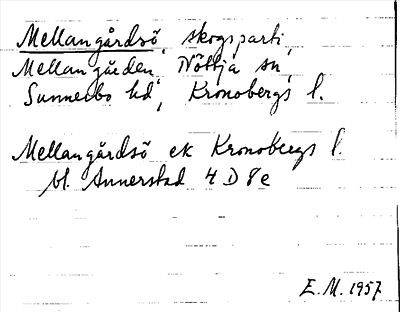 Mellangårdsö, skogsparti,
Mellangården, Nöttja sn,
Sunnerbo hd, Kronobergs l.
Mellangårdsö ek Kronobergs l.
bl. Annerstad 4 D 8 e
E. M. 1957